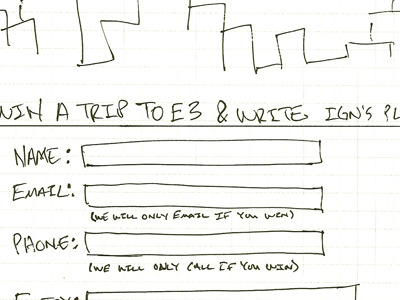 WIN A TRIP TO E3 & WRITE IGN'S
NAME:
EMAIL:
(WE WILL ONLY EMAIL IF YOU WIN)
PHONE:
(WE WILL ONLY CALL IF YOU WIN)